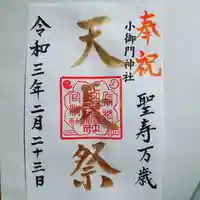 奉祝
聖寿万歳
小御門神社
天長祭
令和三年二月二十三日